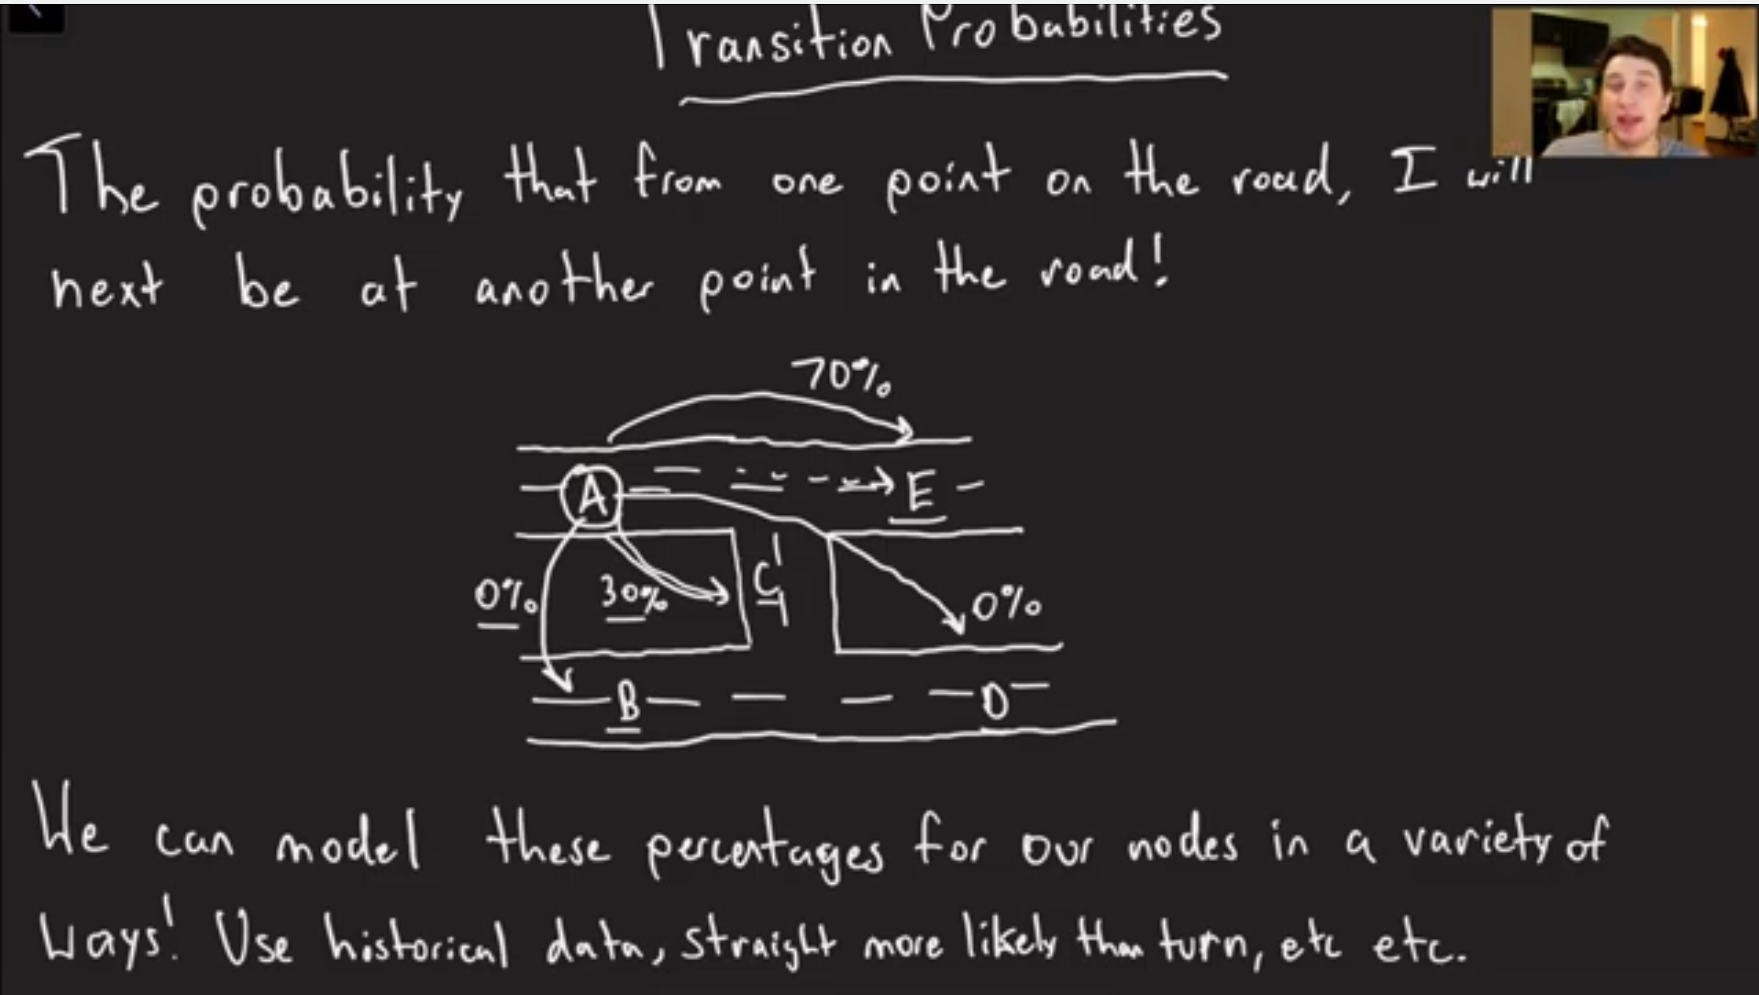 Transition Probabilities
The probability that from one point on the road, I will
next be at another point in the road!
70%
A
E
0%
30%
C
0%
B
D
We can model these percentages for our nodes in a variety of
ways! Use historical data, straight more likely than turn, etc etc.